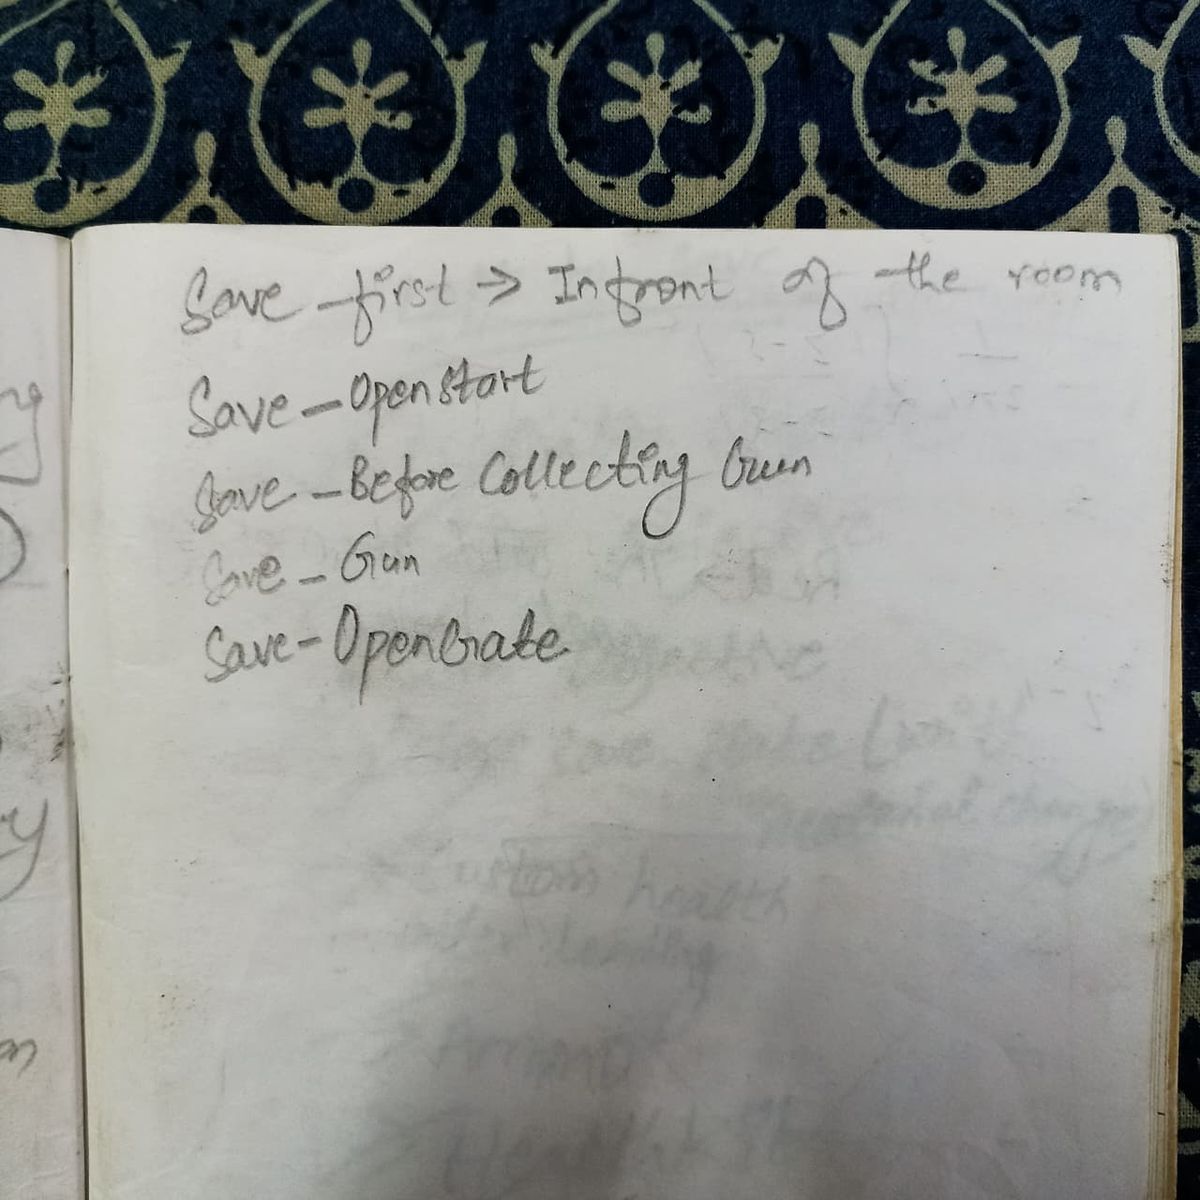 Save - first → Infront of the room
Save - Openstart
Save - Before Collecting Gun
Save - Gun
Save - OpenGate